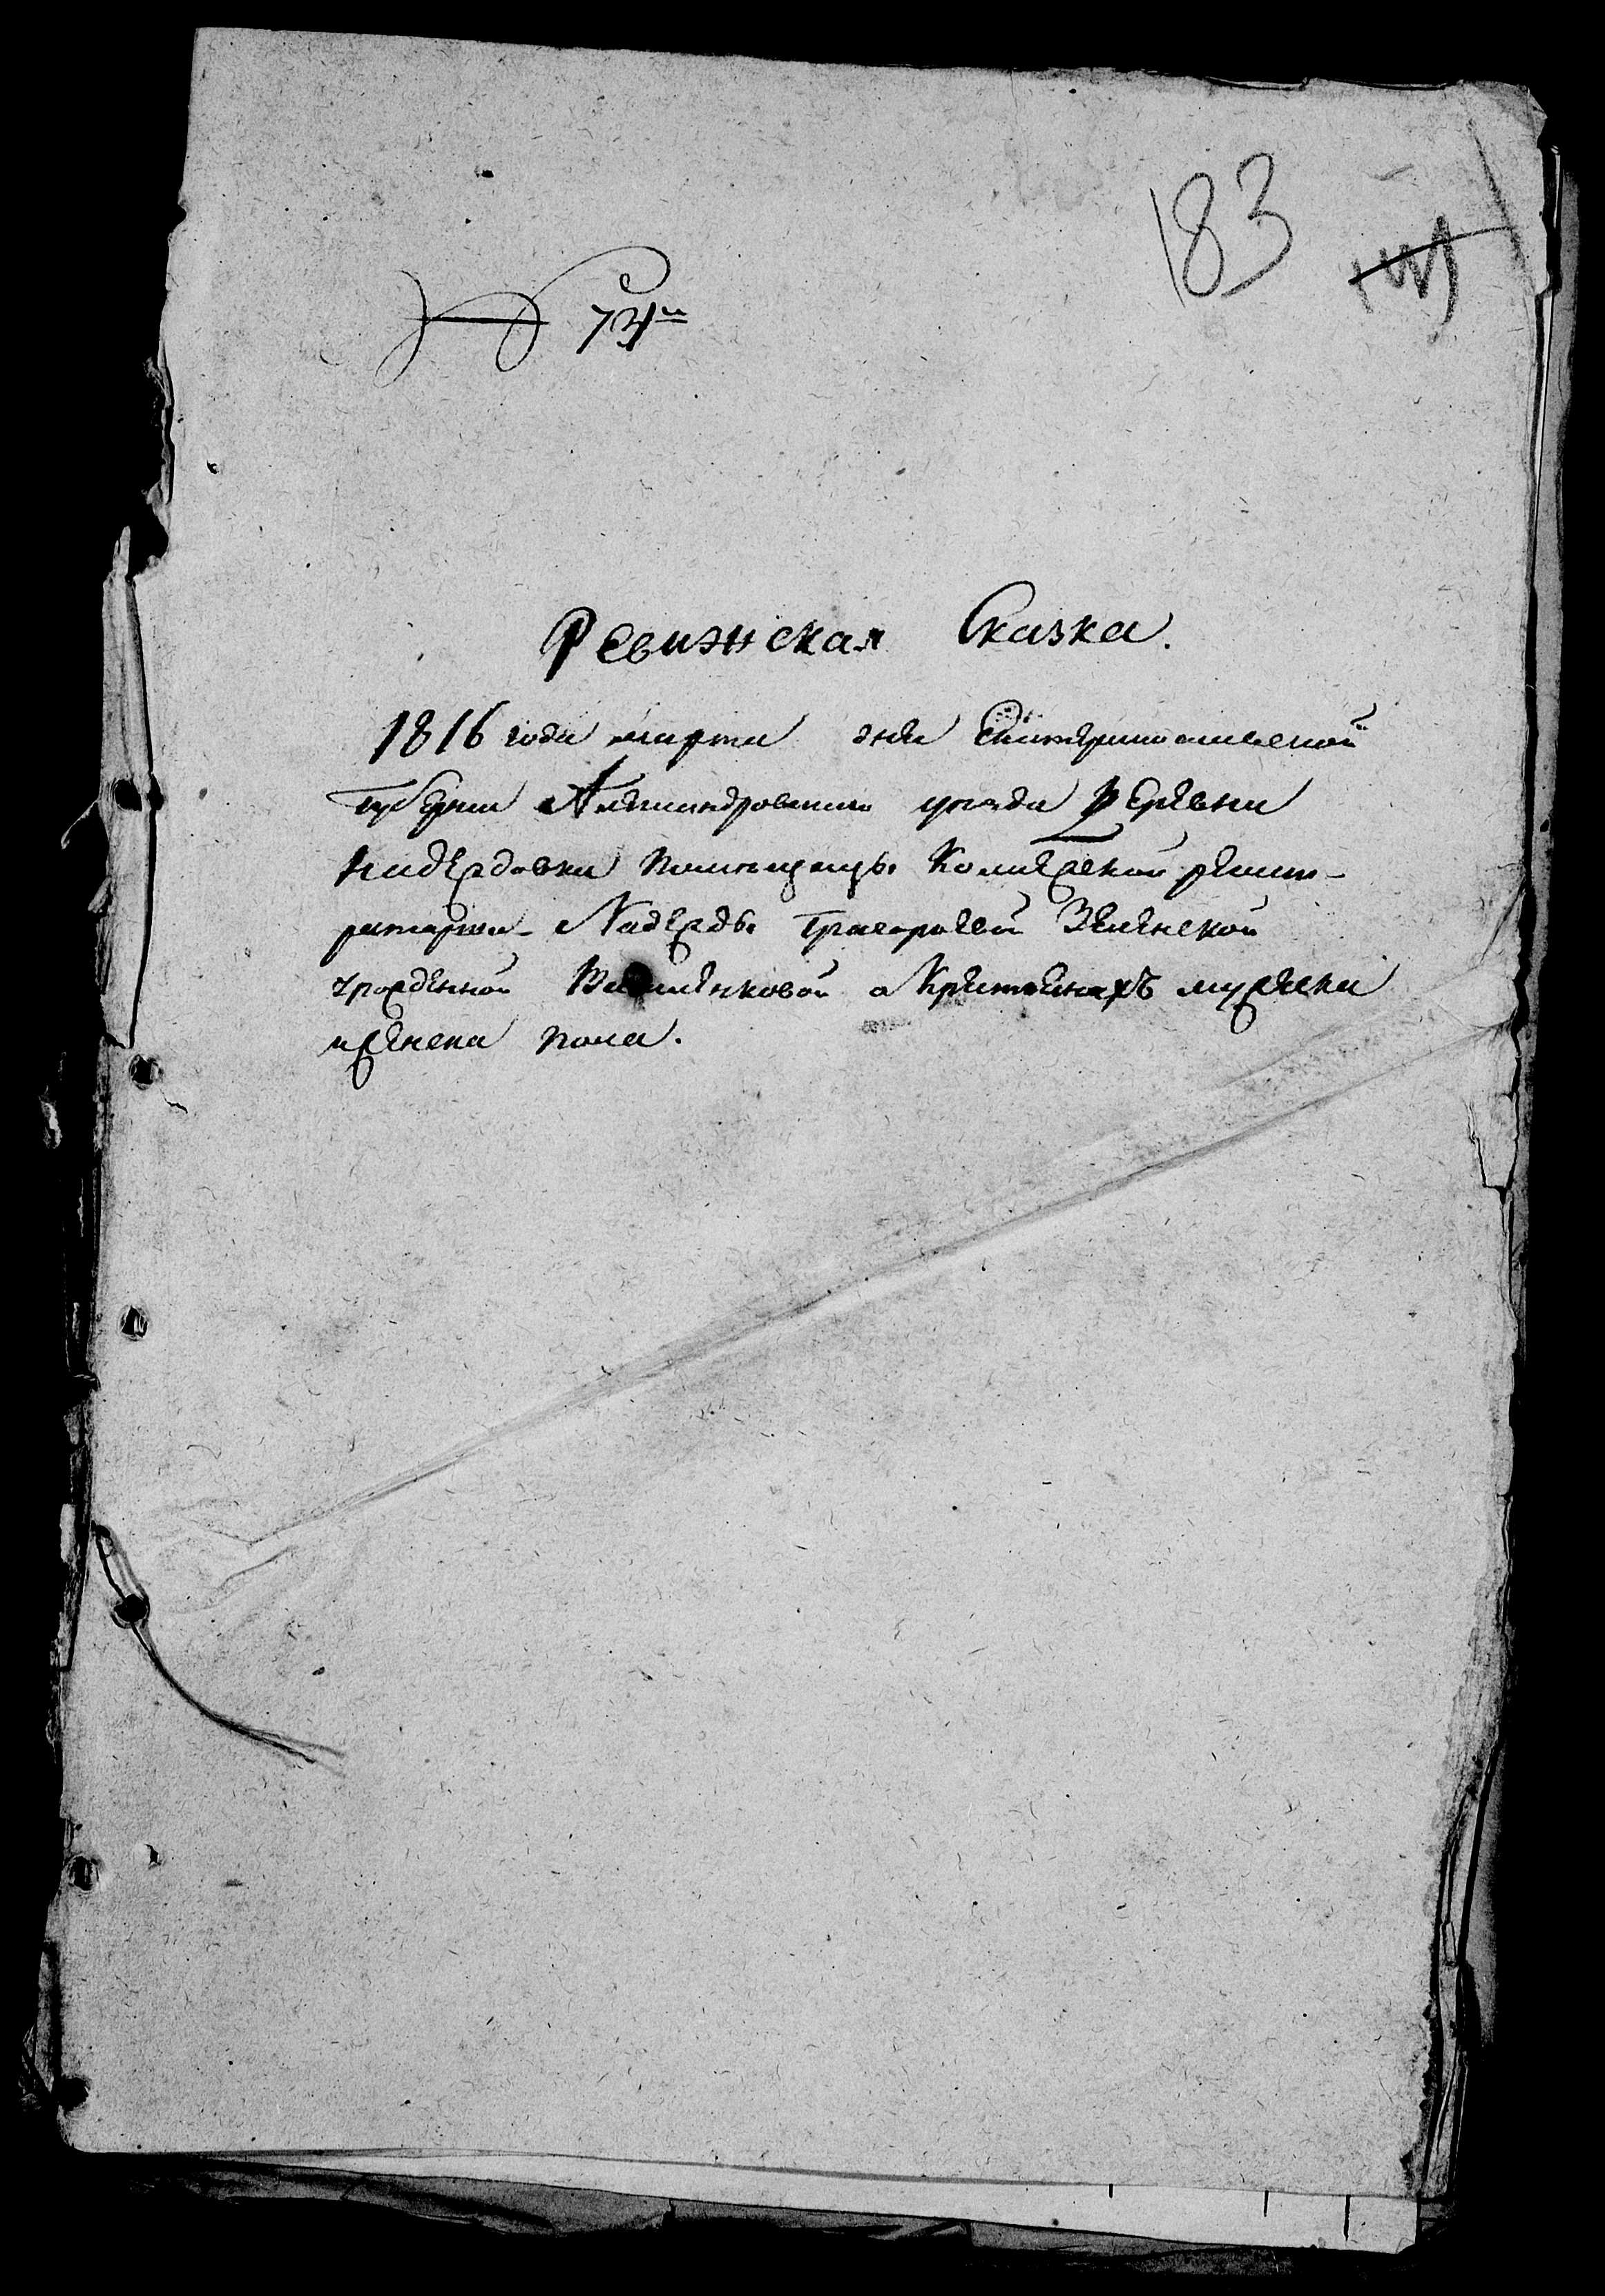 183
№ 73й
Ревизская Сказка.
1816 года марта дня Екатеринославской
Губернии Александровского уезда Деревни
Надеждовки помещицы Колежской регист-
раторши Надежды Григорьевой Зеленской
урожденной о Крестьянахъ мужеска
и женска пола.